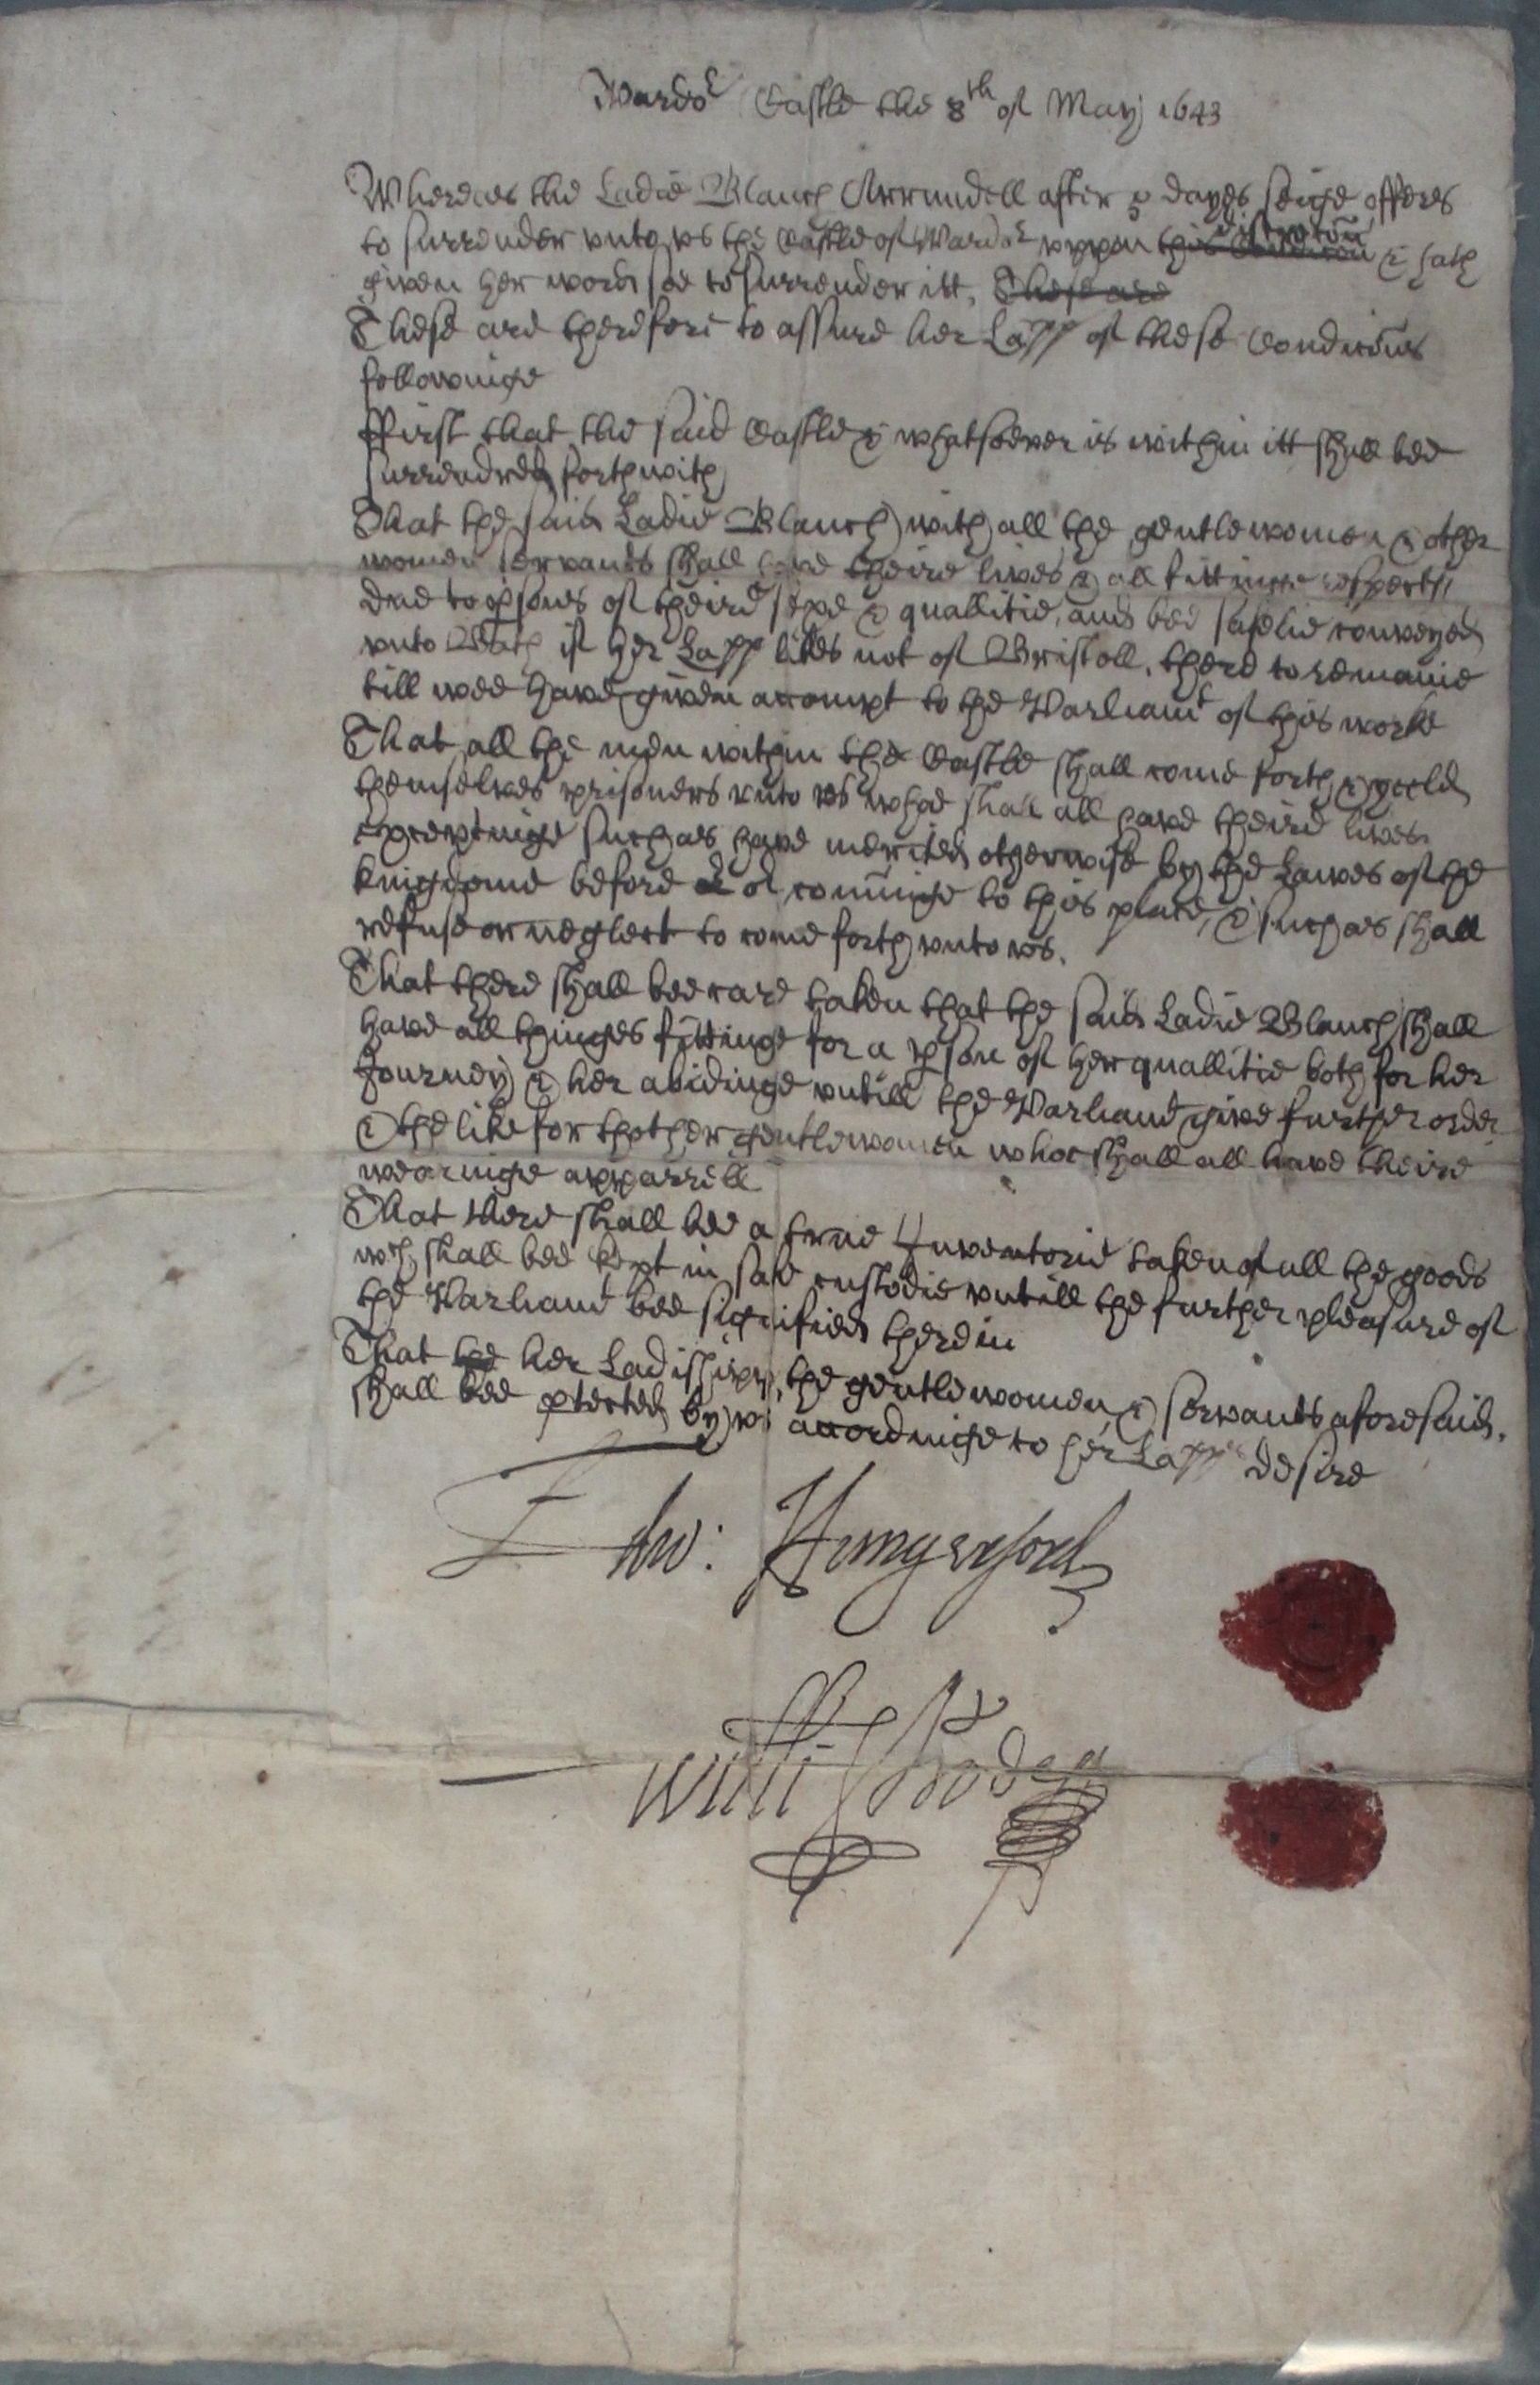 Wardor Castle the 8th of May 1643
Whereas the Ladie Blanch Arrundell after 5 dayes seige offeres
to surrender unto us the Castle of Wardor uppon & hath
given her word soe to surrender itt, These are
These are therefore to assure her Lapp of these Condicions
followinge
ffirst that the said Castle & whatsoever is within itt shall bee
surrendred forthwith
That the said Ladie Blanch with all the gentlewomen & other
women servants shall have theire lives & all fittinge respects
due to psons of theire sexe & quallitie, and bee safelie conveyed
unto Bath if her Lapp likes not of Bristoll, there to remaine
till wee have given accompt to the Parliamt of this worke
That all the men within the Castle shall come forth & yeeld
themselves prisoners unto us whoe shall all have theire lives
exceptinge such as have merited otherwise by the Lawes of the
kingdome before cominge to this place, & such as shall
refuse or neglect to come forth unto us.
That there shall bee care taken that the said Ladie Blanch shall
have all thinges fittinge for a pson of her quallitie both for her
Journey & her abidinge untill the Parliamt give further order
& the like for thother gentlewomen whoe shall all have theire
wearinge apparrell
That there shall bee a true Inventorie taken of all the goods
wch shall bee kept in safe custodie untill the further pleasure of
the Parliamt bee signified therein
That the her Ladishipp, the gentlewomen & servants aforesaid,
shall bee ptected by us accordinge to her Lapps desire
Edw: Hungerford
Willi Strode